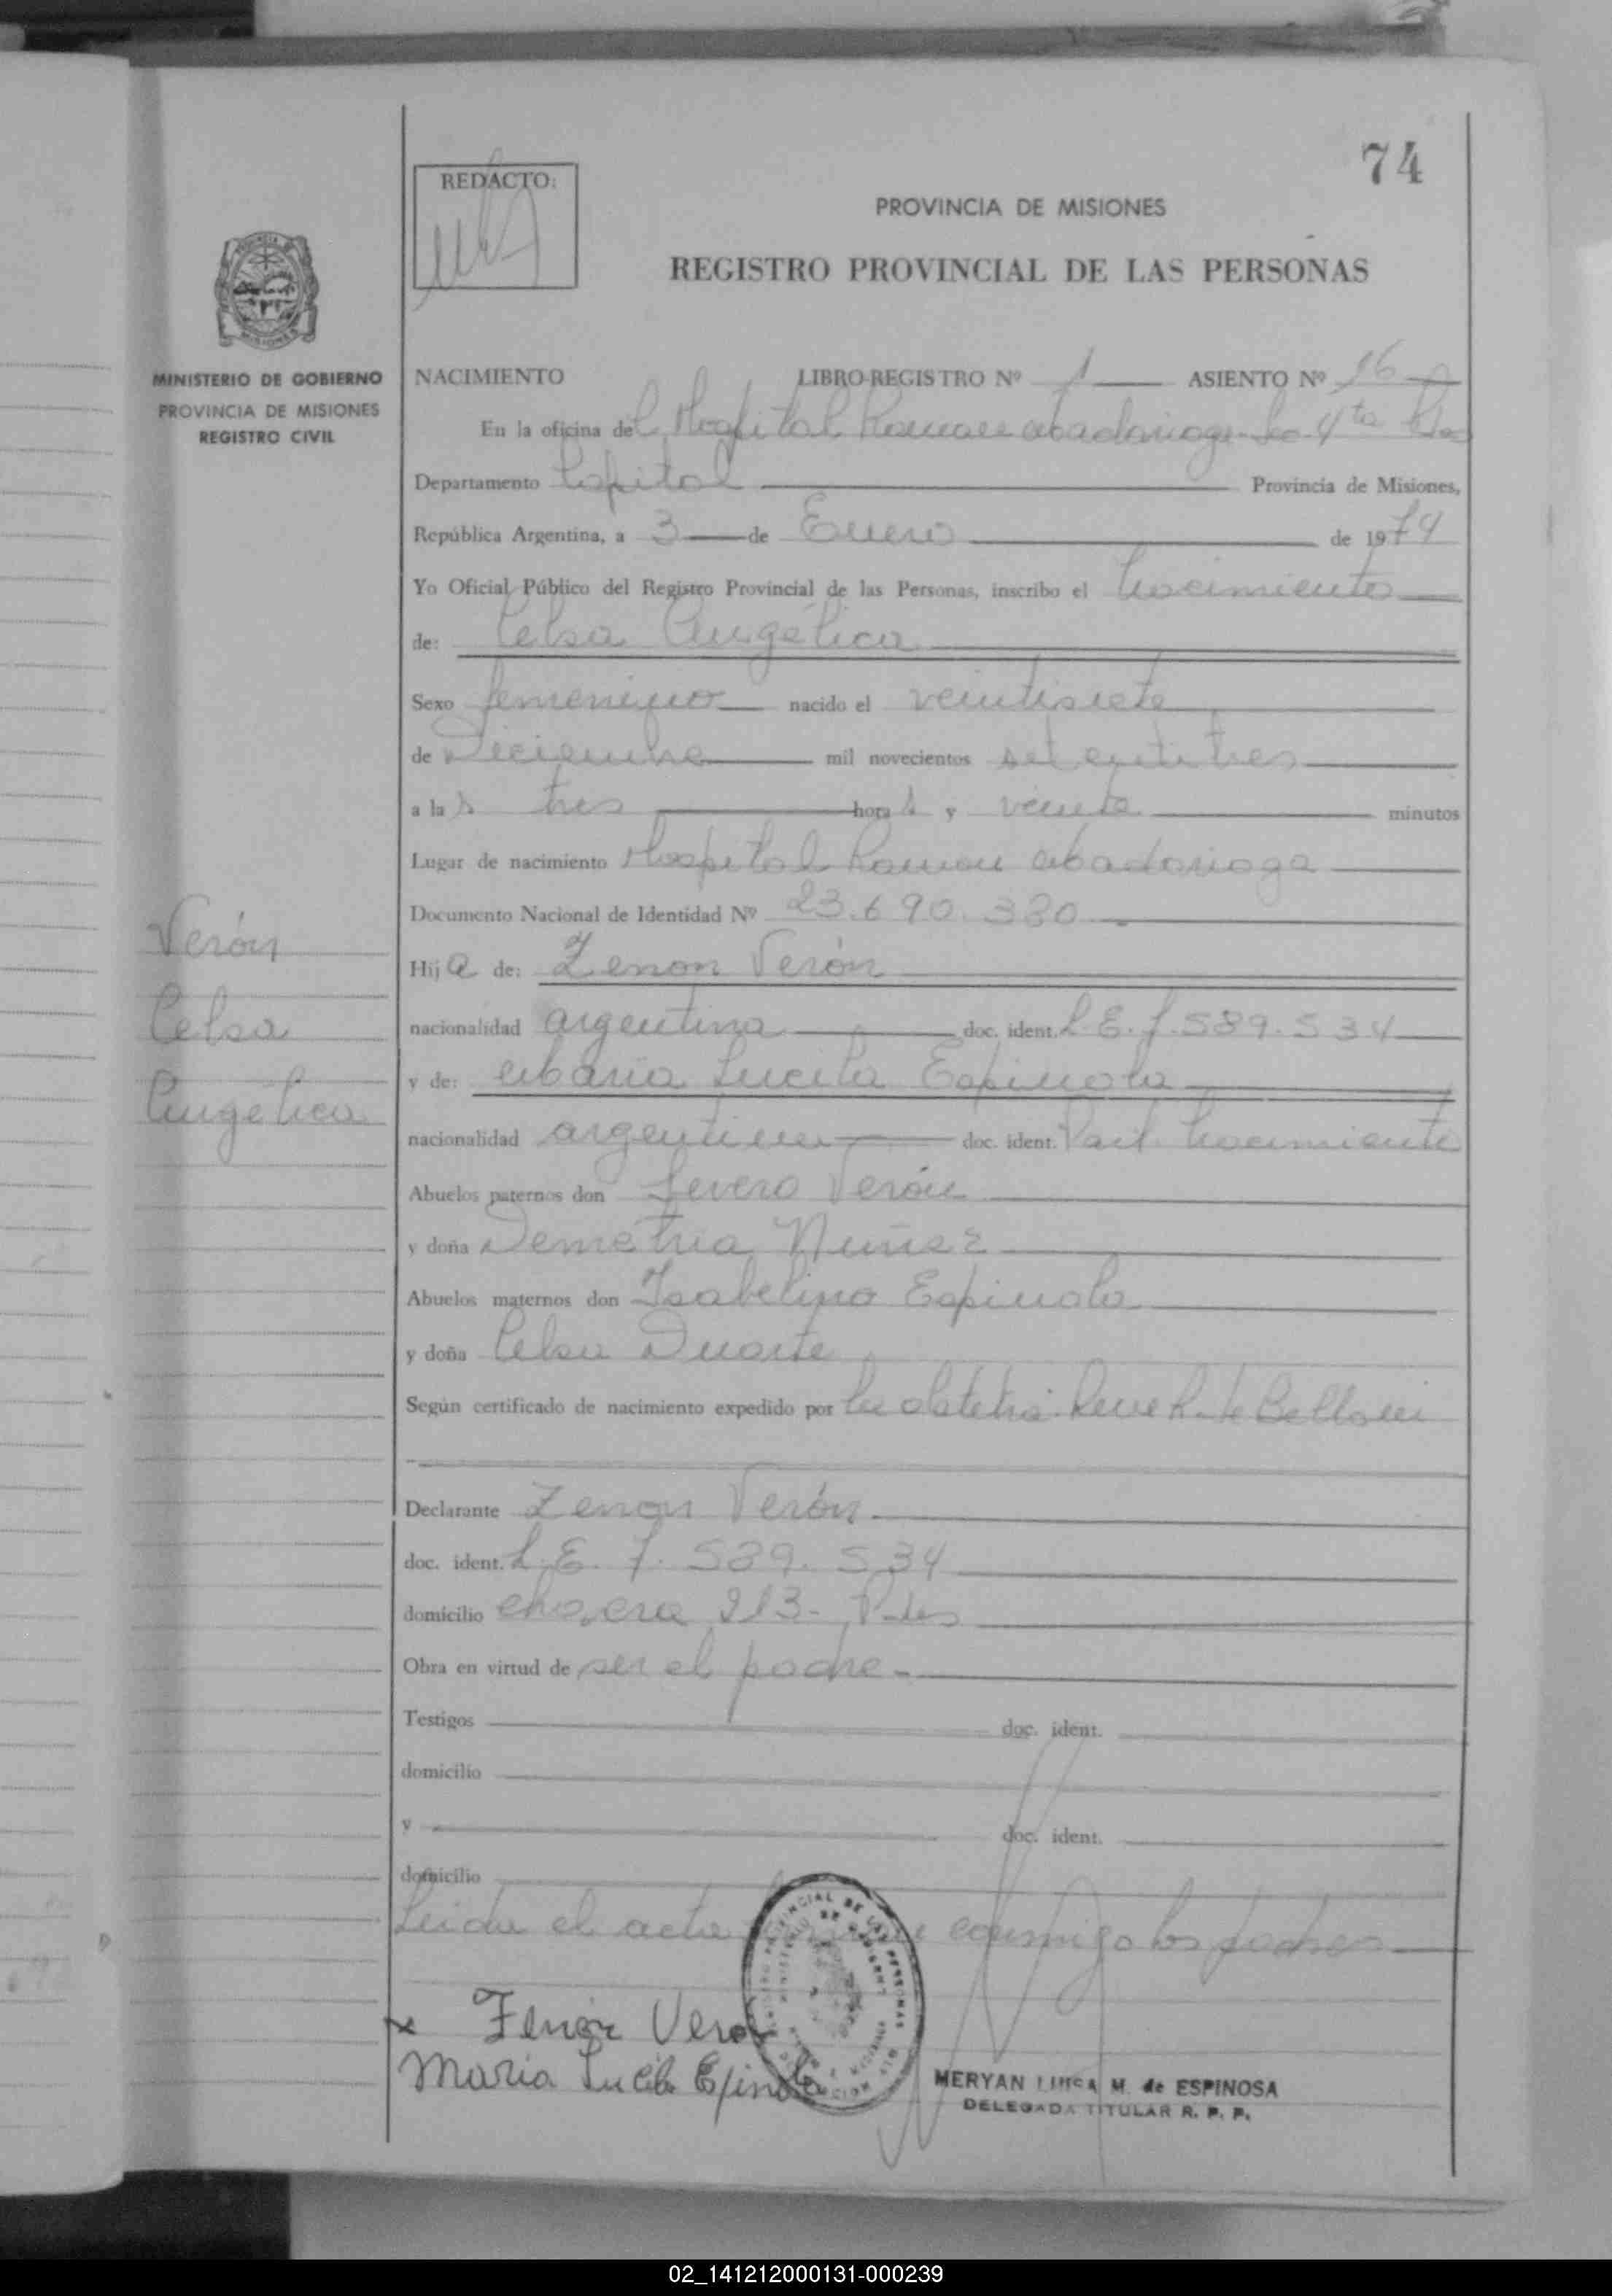 74
REDACTO:
PROVINCIA DE MISIONES
REGISTRO PROVINCIAL DE LAS PERSONAS
MINISTERIO DE GOBIERNO
PROVINCIA DE MISIONES
REGISTRO CIVIL
NACIMIENTO LIBRO-REGISTRO Nº 1 ASIENTO Nº 16
En la oficina del Hospital Ramon Madariaga Sec 4ta
Departamento Capital Provincia de Misiones,
República Argentina, a 3 de Enero de 1974
Yo Oficial Público del Registro Provincial de las Personas, inscribo el Nacimiento
de: Celsa Angélica
Sexo femenino nacido el veintisiete
de Diciembre mil novecientos setentitres
a las tres horas y veinte minutos
Lugar de nacimiento Hospital Ramon Madariaga
Documento Nacional de Identidad Nº 23.690.380
Verón
Celsa
Angelica
Hija de: Zenon Verón
nacionalidad argentina doc. ident. L.E. 7.539.534
y de: Maria Lucila Espinola
nacionalidad argentina doc. ident. Part. Nacimiento
Abuelos paternos don Severo Verón
y doña Demetria Nuñez
Abuelos maternos don Isabelino Espinola
y doña Celsa Duarte
Según certificado de nacimiento expedido por la obstetra
Declarante Zenon Verón
doc. ident. L.E. 7.539.534
domicilio 213-
Obra en virtud de ser el padre-
Testigos doc. ident.
domicilio
y doc. ident.
domicilio
Leida el acta conmigo los padres
x Zenon Veron
Maria Lucila Epinola
MERYAN LUISA M. de ESPINOSA
DELEGADA TITULAR R. P. P.
02_141212000131-000239